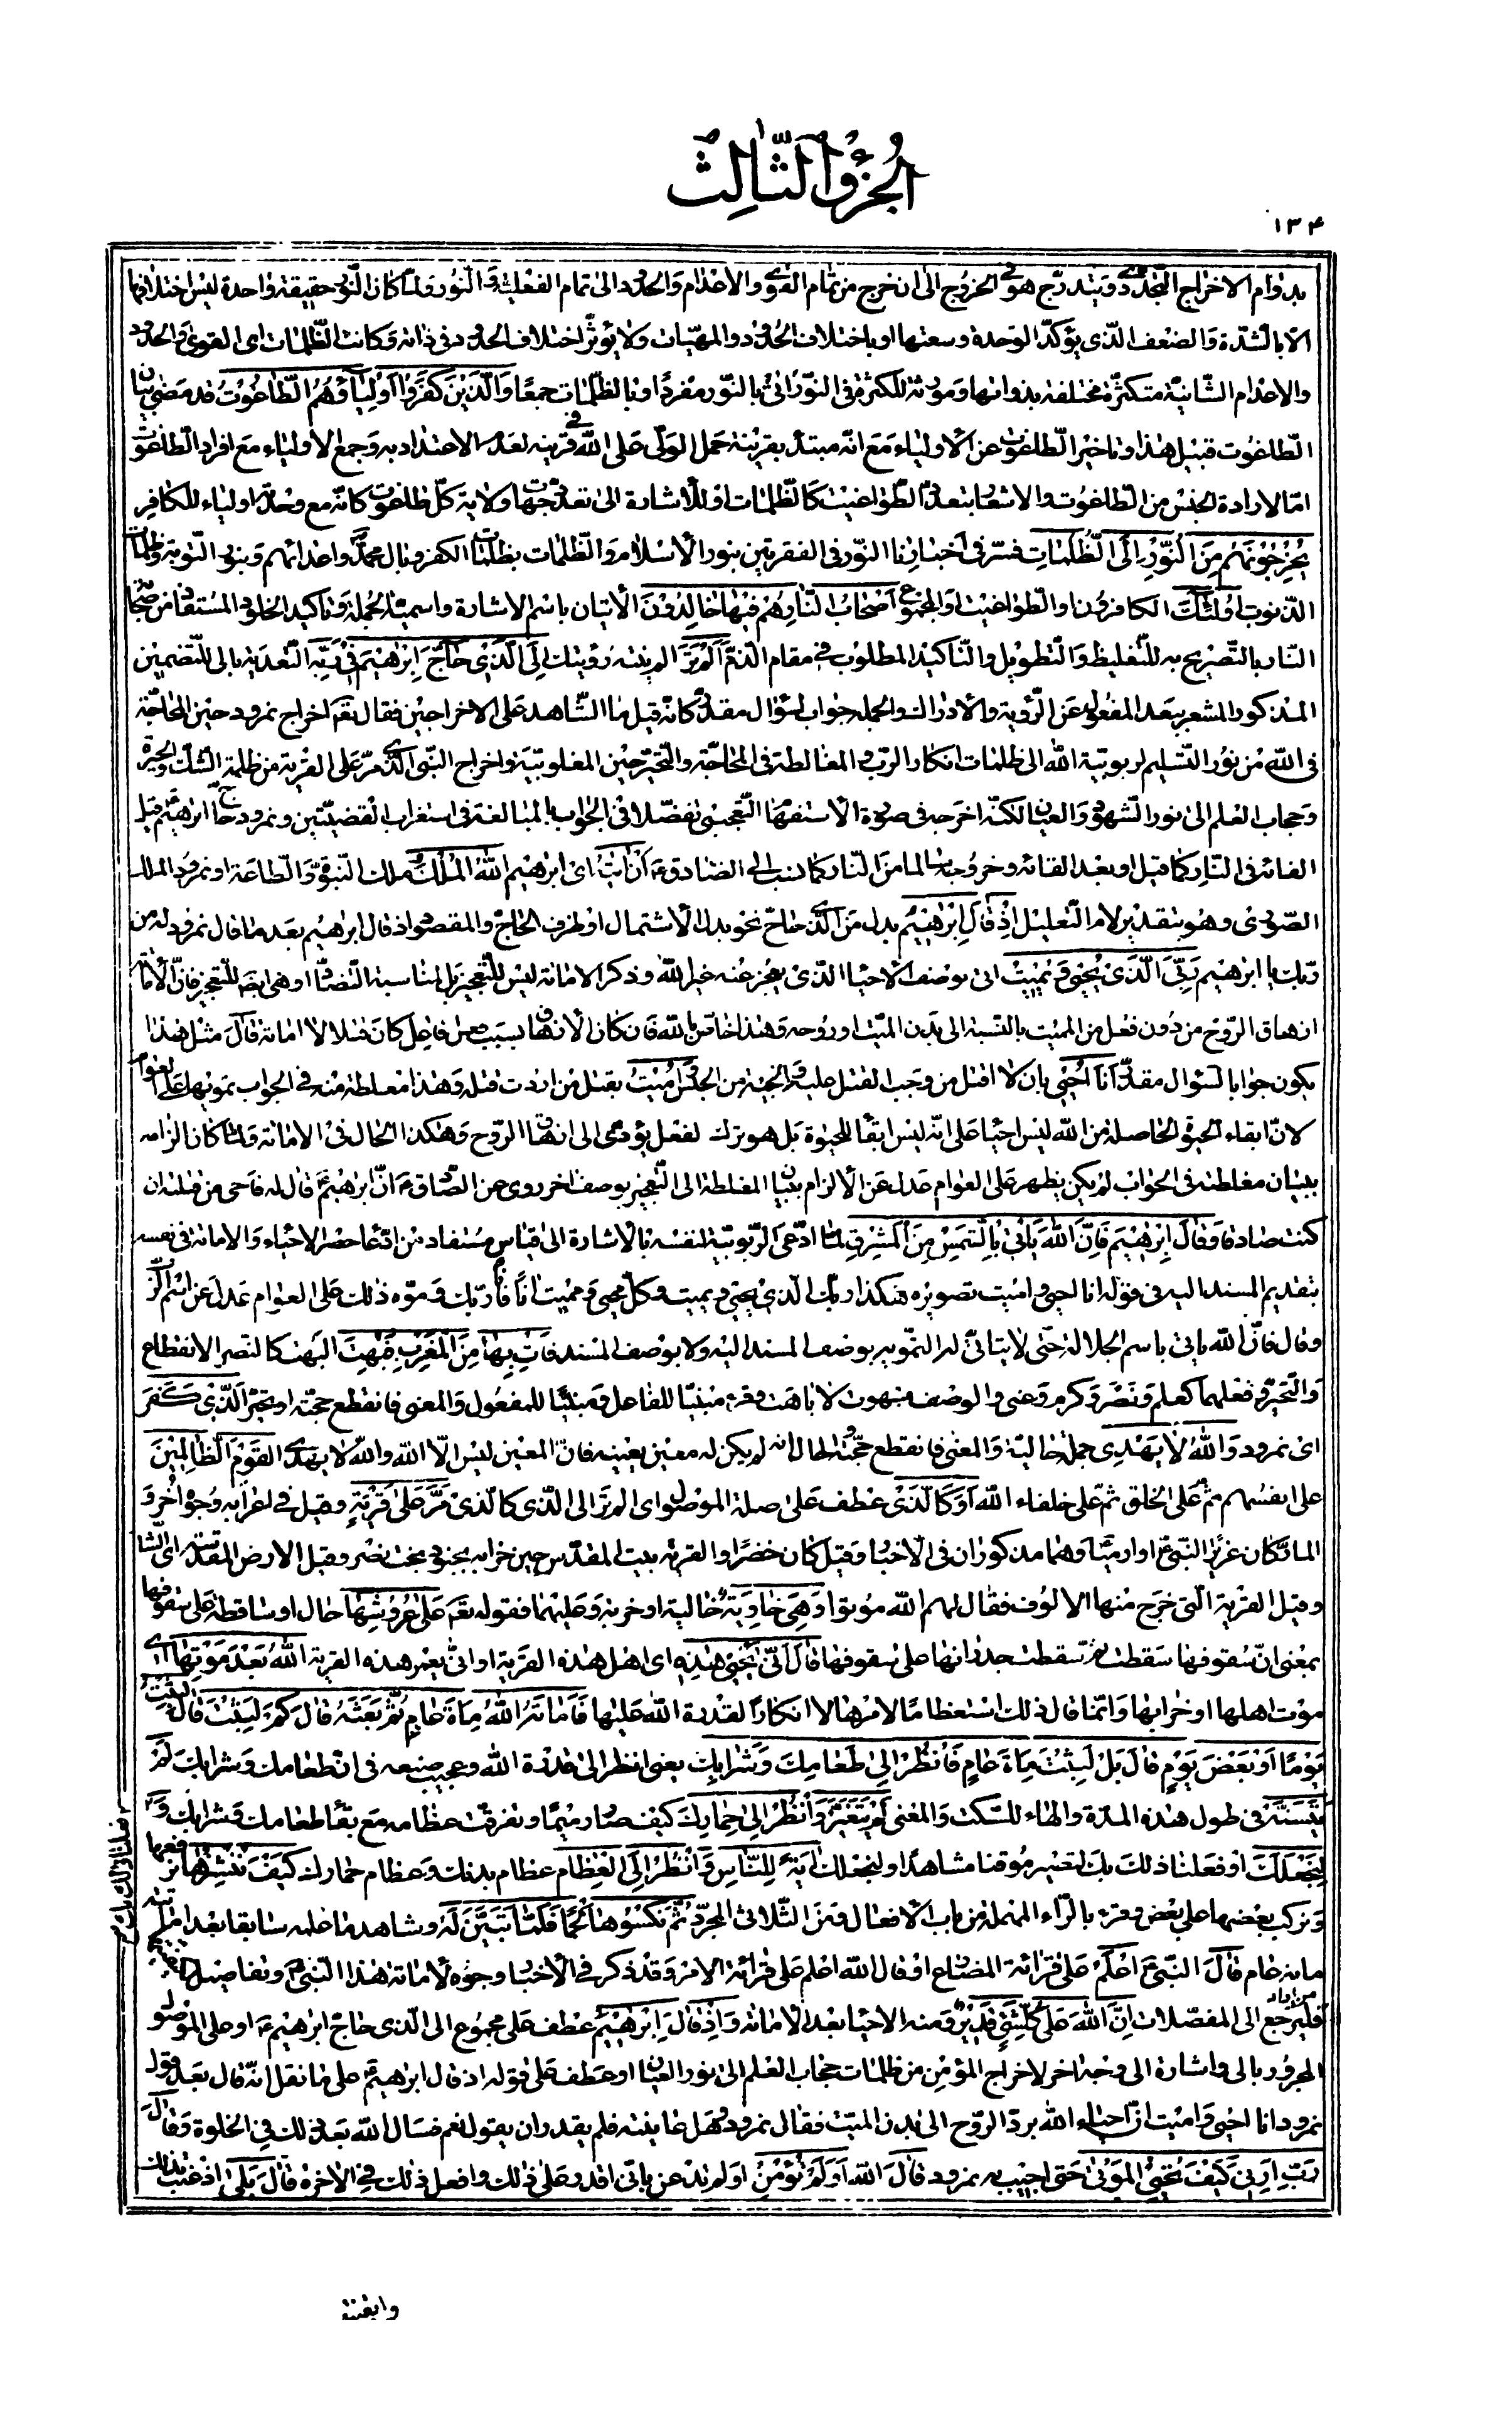 الجزؤ الثالث
١٣۴
بدوام الاخراج التجددى ويتدرج هو فى الخروج الى ان خرج من تمام القوى والاعدام والحدود الى تمام الفعلية والنور ولما كان النور حقيقة واحدة ليس اختلافها
الا بالشدة والضعف الذى يؤكد الوحدة وسعتها او باختلاف الحدود والمهيات ولا يوثر اختلاف الحدود فى ذاته وكانت الظلمات اى القوى والحدود
والاعدام الشانية متكثرة مختلفة بذواتها ومورثة للكثرة فى النور اتى بالنور مفردا وبالظلمات جمعا والذين كفروا اولياؤهم الطاغوت قد مضى بيان
الطاغوت قبيل هذا وتاخير الطاغوت عن الاولياء مع انه مبتدء بقرينة حمل الولى على الله فى قرينه لعدم الاعتداد به وجمع الاولياء مع افراد الطاغوت
اما لارادة الجنس من الطاغوت والاشعار بتعدد الطواغيت كالظلمات او للاشارة الى تعدد جهات ولاية كل طاغوت كانه مع وحدته اولياء للكافر
يخرجونهم من النور الى الظلمات فسر فى اخبارنا النور فى الفقرتين بنور الاسلام والظلمات بظلمات الكفر وبال محمد واعدائهم وبنور التوبة وظلمات
الذنوب اولئك الكافرون او الطواغيت او المجموع اصحاب النار هم فيها خالدون الاتيان باسم الاشارة واسمية الجملة وتاكيد الخلود المستفاد من صحابة
النار بالتصريح به للتغليظ والتطويل والتاكيد المطلوب فى مقام الذم الم تر الم ينته رؤيتك الى الذى حاج ابرهيم فى ربه التعدية بالى للتضمين
المذكور المشعر ببعد المفعول عن الرؤية والادراك والجملة جواب لسؤال مقدر كانه قيل ما الشاهد على الاخراجين فقال نعم اخراج نمرود حين المحاجة
فى الله من نور التسليم لربوبية الله الى ظلمات انكار الرب والمغالطة فى المحاجة والتحير حين المغلوبية واخراج النبى الذى مر على القرية من ظلمة الشك والحيرة
وحجاب العلم الى نور الشهود والعيان لكنه اخرجه فى صورة الاستفهام التعجبى تفضلا فى الجواب بالمبالغة فى استغراب القضيتين ونمرود حاج ابرهيم قبل
القائه فى النار كما قيل او بعد القائه وخروجه سالما من النار كما نسب الى الصادق ع ان اتيه اى ابرهيم الله الملك ملك النبوة والطاعة او نمرود الملك
الصورى وهو بتقدير لام التعليل اذ قال ابرهيم بدل من الذى حاج نحو بدل الاشتمال او ظرف لحاج والمقصود اذ قال ابرهيم بعد ما قال نمرود له من
ربك يا ابرهيم ربى الذى يحيى ويميت اتى بوصف الاحياء الذى يعجز عنه غير الله وذكر الاماتة ليس للتعجيز بل لمناسبة التضاد او هى ايضا للتعجيز فان الاماتة
ازهاق الروح من دون فعل من المميت بالنسبة الى بدن الميت او روحه وهذا خاص بالله فان كان الازهاق بسبب من فاعل كان قتلا لا اماتة قال مثل هذا
يكون جوابا لسؤال مقدر انا احيى بان لا اقتل من وجب القتل عليه واخرجته من الحبس واميت بقتل من اردت قتله وهذا مغالطة منه فى الجواب تمويها على العوام
لان ابقاء الحيوة الحاصلة من الله ليس احياء على انه ليس ابقاء للحيوة بل هو ترك لفعل يؤدى الى ازهاق الروح وهكذا الحال فى الاماتة ولما كان الزامه
ببيان مغالطته فى الجواب لم يكن يظهر على العوام عدل عن الالزام ببيان المغالطة الى التعجيز بوصف اخر روى عن الصادق ع ان ابرهيم قال له فاحى من قتلته ان
كنت صادقا وقال ابرهيم فان الله ياتى بالشمس من المشرق لما ادعى الربوبية لنفسه بالاشارة الى قياس مستفاد من ادعاء حصر الاحياء والاماتة فى نفسه
بتقديم المسند اليه فى قوله انا احيى واميت تصويره هكذا ربك الذى يحيى ويميت وكل محيى ومميت انا فانا ربك وموه ذلك على العوام عدل عن اسم الرب
وقال فان الله ياتى باسم الجلالة حتى لا يتاتى له التمويه بوصف المسند اليه ولا بوصف المسند فات بها من المغرب فبهت البهت كالنصر الانقطاع
والتحير وفعلهما كعلم ونصر وكرم وعنى والوصف مبهوت لا باهت وقرء مبنيا للفاعل ومبنيا للمفعول والمعنى فانقطع حجته او تحير الذى كفر
اى نمرود والله لا يهدى جملة حالية والمعنى فانقطع حجته والحال انه لم يكن له معين يعينه فان المعين ليس الا الله والله لا يهدى القوم الظالمين
على انفسهم ثم على الخلق ثم على خلفاء الله او كالذى عطف على صلة الموصول اى الم تر الى الذى كالذى مر على قرية وقيل فى اعرابه وجوه اخر و
المار كان عزيز النبى ع او ارميا وهما مذكوران فى الاخبار وقيل كان خضرا والقرية بيت المقدس حين خرابه بجنود بخت نصر وقيل الارض المقدسة اى الشام
وقيل القرية التى خرج منها الالوف فقال لهم الله موتوا وهى خاوية خالية او خربة وعليهما فقوله نعم على عروشها حال او ساقطة على سقوفها
بمعنى ان سقوفها سقطت ثم سقطت جدرانها على سقوفها قال انى يحيى هذه اى اهل هذه القرية او انى يعمر هذه القرية الله بعد موتها اى
موت اهلها او خرابها وانما قال ذلك استعظاما لامرها لا انكارا لقدرة الله عليها فاماته الله مائة عام ثم بعثه قال كم لبثت قال لبثت
يوما او بعض يوم قال بل لبثت مائة عام فانظر الى طعامك وشرابك يعنى انظر الى قدرة الله وعجيب صنعه فى ان طعامك وشرابك لم
يتسنه فى طول هذه المدة والهاء للسكت والمعنى لم يتغير وانظر الى حمارك كيف صار ميتا وتفرقت عظامه مع بقاء طعامك وشرابك و
لنجعلك او فعلنا ذلك بك لتصير موقنا مشاهدا ولنجعلك اية للناس وانظر الى العظام عظام بدنك وعظام حمارك كيف ننشزها نرفعها
ونركب بعضها على بعض وقرء بالراء المهملة من باب الافعال ومن الثلاثى المجرد ثم نكسوها لحما فلما تبين له وشاهد ما علمه سابقا بعد اماتته
مائة عام قال النبى ع اعلم على قرائة المضارع او قال الله اعلم على قرائة الامر وقد ذكر فى الاخبار وجوه لاماتة هذا النبى وتفاصيل
من اراد فليرجع الى المفصلات ان الله على كلشئ قدير ومنه الاحياء بعد الاماتة واذ قال ابرهيم عطف على مجموع الى الذى حاج ابرهيم ع او على الموصول
المجرور بالى واشارة الى وجه اخر لاخراج المؤمن من ظلمات حجاب العلم الى نور العيان او عطف على قوله اذ قال ابرهيم على ما نقل انه قال بعد قول
نمرود انا احيى واميت ان احياء الله برد الروح الى بدن الميت فقال نمرود وهل عاينته فلم يقدر ان يقول نعم فسال الله بعد ذلك فى الخلوة وقال
رب ارنى كيف تحيى الموتى حتى اجيب به نمرود قال الله اولم تؤمن اولم تذعن بانى اقدر على ذلك وافعل ذلك فى الاخرة قال بلى اذعنت بذلك
وايقنت